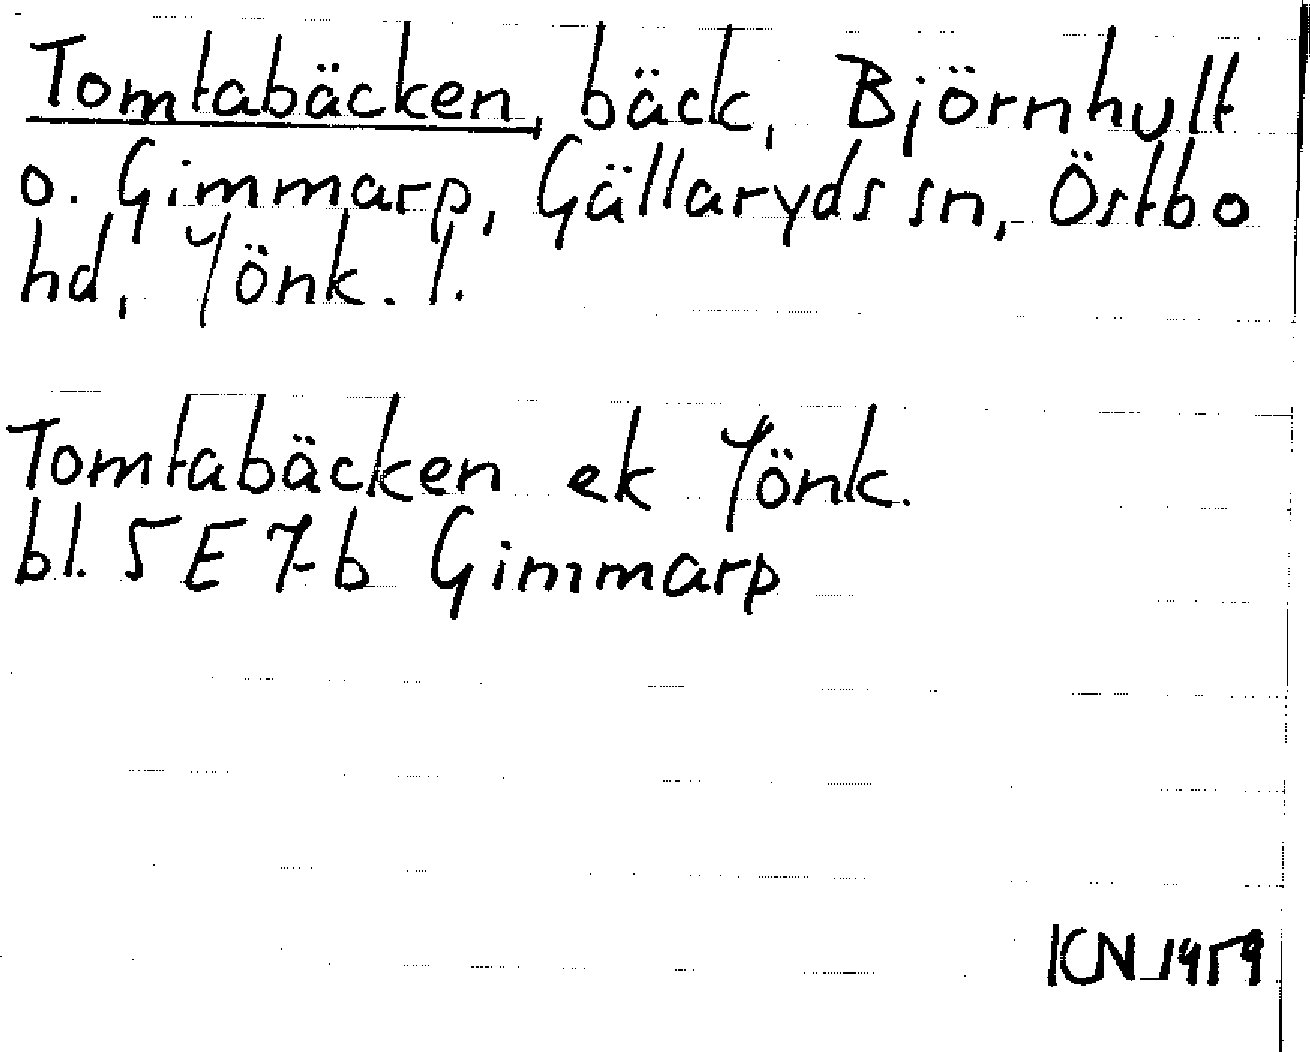 Tomtabäcken, bäck, Björnhult
o. Gimmarp, Gällaryds sn, Östbo
hd, Jönk. l.
Tomtabäcken ek Jönk.
bl. 5E 7-b Gimmarp
ICN 1959